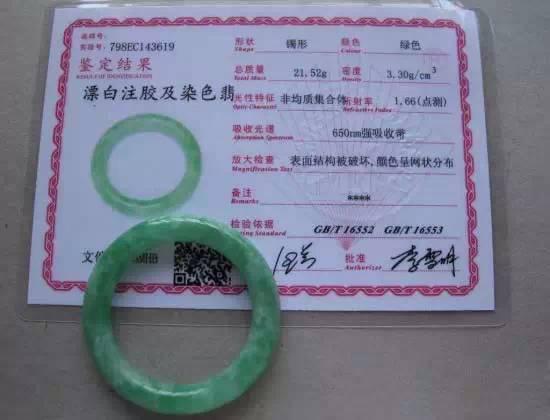 实验号: 798EC143619
鉴定结果
RESULT OF IDENTIFICATION
漂白注胶及染色翡
形状 镯形 颜色 绿色
Shape Colour
总质量 21.52g 密度 3.30g/cm³
Total Mass Density
光性特征 非均质集合体 折射率 1.66(点测)
Optic Character Refractive Index
吸收光谱 650nm强吸收带
Absorption Spectrum
放大检查 表面结构被破坏,颜色呈网状分布
Magnification Test
备注 ****
Remarks
检验依据 GB/T 16552 GB/T 16553
Testing Standard
批准
Authorizer